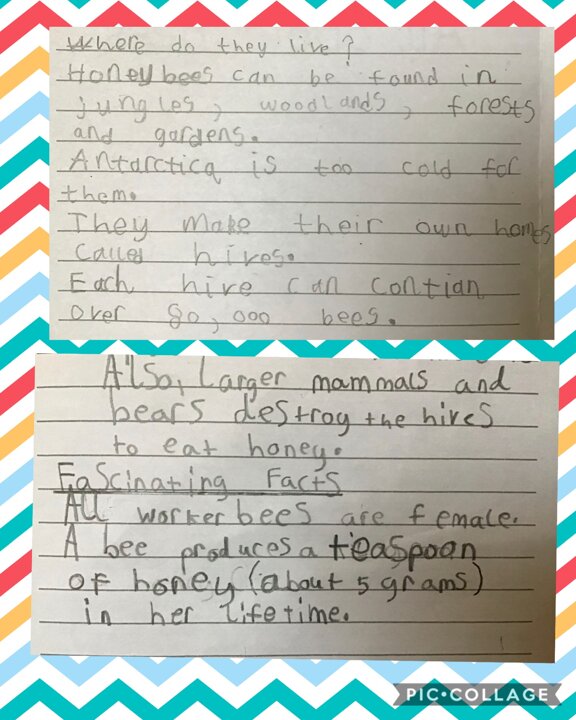 Where do they live?
Honeybees can be found in
jungles, woodlands, forests
and gardens.
Antarctica is too cold for
them.
They make their own homes
called hives.
Each hive can contian
over 80,000 bees.
Also, Larger mammals and
bears destroy the hives
to eat honey.
Fascinating Facts
All worker bees are female.
A bee produces a teaspoon
of honey (about 5 grams)
in her lifetime.
PIC•COLLAGE